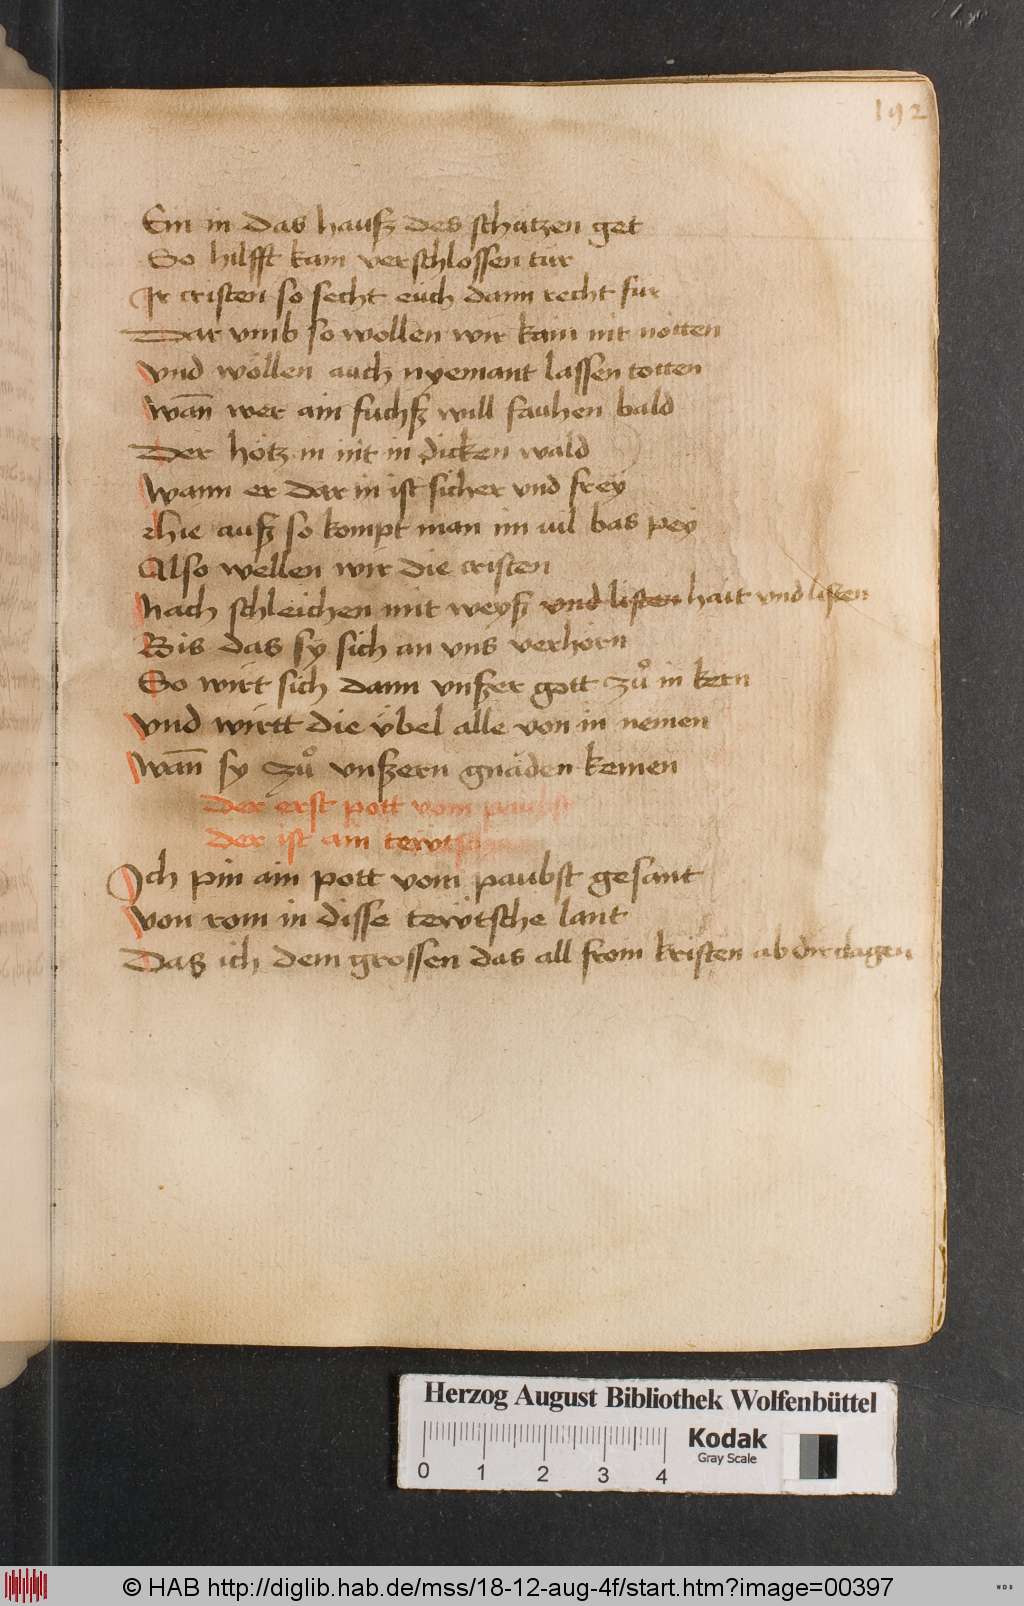 192
Ein in das hausz des schatzen get
So hilfft kam verschlossen tür
Ir cristen so secht euch dann recht für
Dar vmb so wollen wir kain nit nötten
vnd wöllen auch nyemant lassen totten
wan̄ wer ain fuchsz will fauhen bald
Der hötz in nit in dicken wald
wann er dar in ist sicher vnd frey
hie ausz so kompt man im vil bas pey
Also wellen wir die cristen
Nach schleichen mit weysz vnd listen hait vnd listen
Bis das sy sich an vns verhorn
So wirt sich dann vnszer gott zuͦ in kern
vnd wirtt die übel alle von in nemen
wan̄ sy zuͦ vnszern gnäden kemen
der erst pott vom paubst
der ist ain tewts
Ich pin ain pott vom paubst gesant
von rom in disse tewtsche lant
Das ich dem grossen das all from kristen ab dir clagen
Herzog August Bibliothek Wolfenbüttel
Kodak
Gray Scale
0 1 2 3 4
© HAB http://diglib.hab.de/mss/18-12-aug-4f/start.htm?image=00397